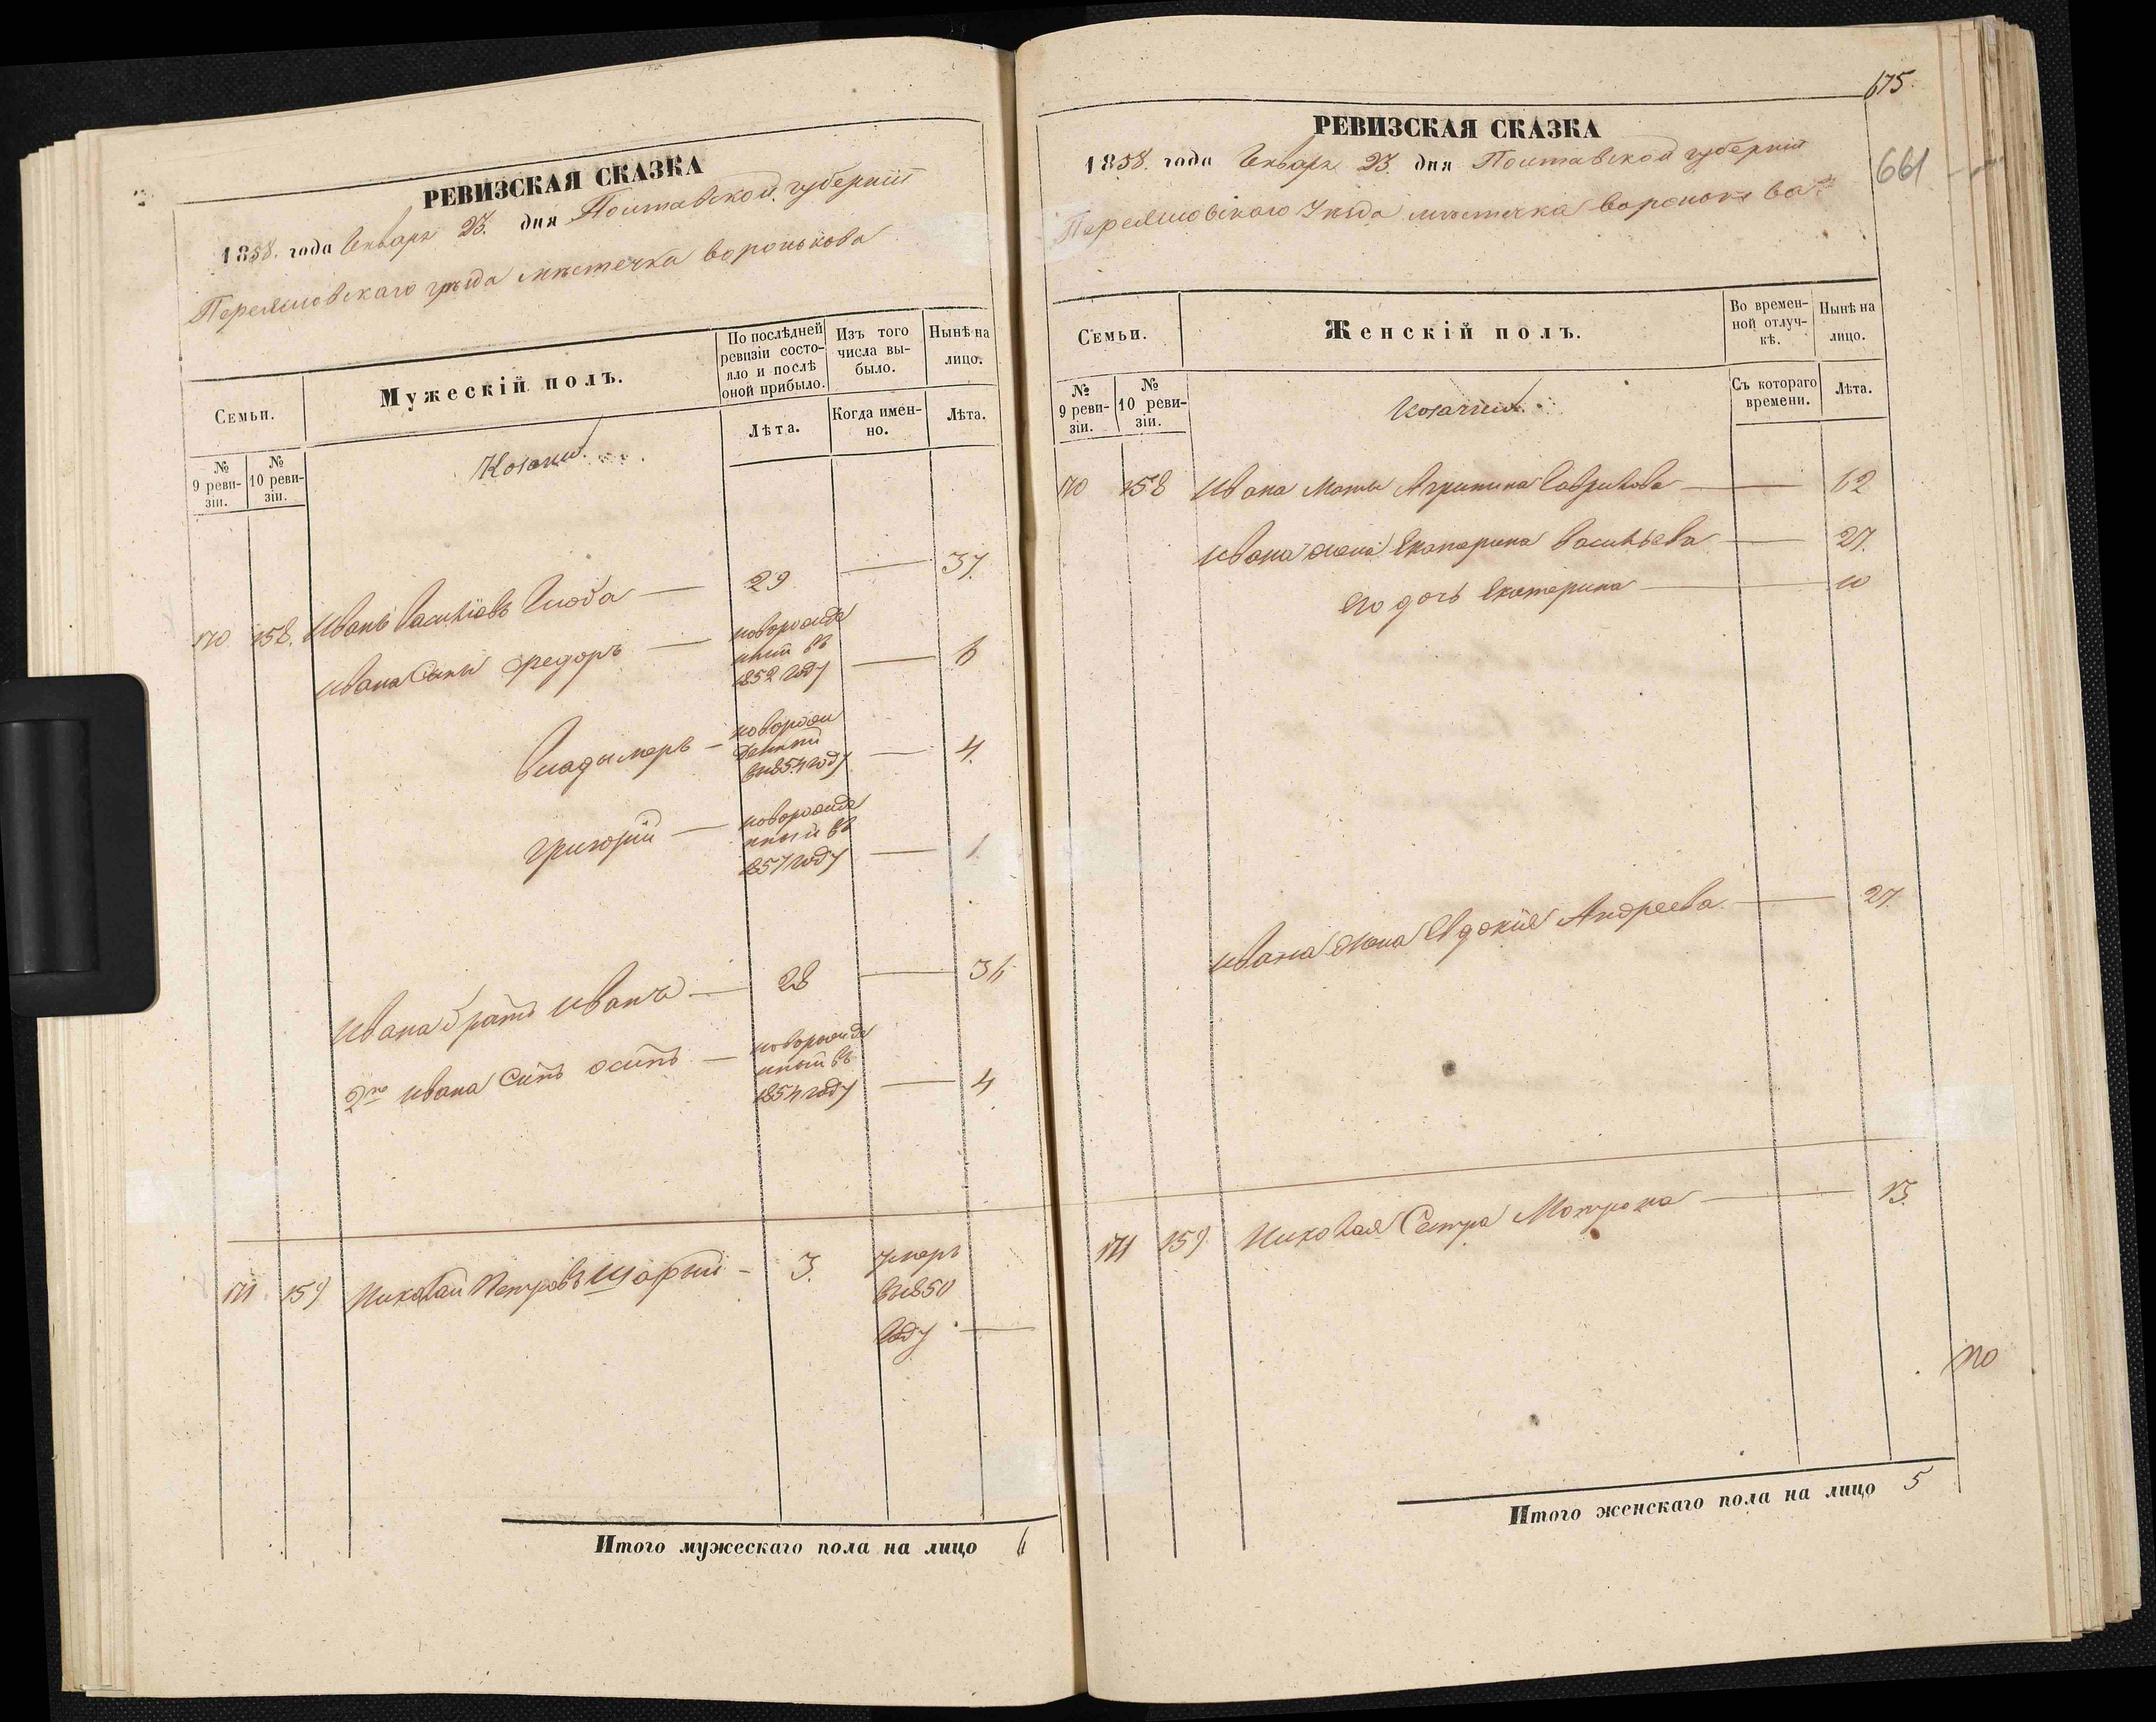 РЕВИЗСКАЯ СКАЗКА
1858. года Генваря 23. дня Полтавской губернии
Переясловскаго уезда местечка Воронькова
Семьи.
Мужескій полъ.
По послѣдней ревизіи состояло и послѣ оной прибыло.
Изъ того числа выбыло.
Нынѣ на лицо.
№ 9 ревизіи.
№ 10 ревизіи.
Козаки.
Лѣта.
Когда именно.
Лѣта.
170 158. Иванъ Васильевъ Глоба — 29 — 37.
Ивана Сынъ Федоръ — новорожде
нный въ
1852 году — 6
Владымеръ — новорож
денный
въ 1854 году — 4.
Григорій — новорожде
нный въ
1857 году — 1.
Ивана братъ Иванъ — 28 — 36
2го Ивана Синъ Осипъ — новорожде
нный въ
1854 году — 4
171 159 Николай Петровъ Шарый — 3. умеръ
въ 1850
году —
Итого мужескаго пола на лицо 6
675.
661
РЕВИЗСКАЯ СКАЗКА
1858. года Генваря 23. дня Полтавской губерніи
Переясловскаго Уезда местечка Воронькова
Семьи.
Женскій полъ.
Во временной отлучкѣ.
Нынѣ на лицо.
№ 9 ревизіи.
№ 10 ревизіи.
Козачки.
Съ котораго времени.
Лѣта.
170 158 Ивана Мать Агрипина Гаврилова — 62
Ивана жена Екатерина Васильева — 27.
Его дочь Екатерина — 10
Ивана жена Евдокія Андреева — 27.
171 159 Николая Сестра Мотрона — 13.
Итого женскаго пола на лицо 5